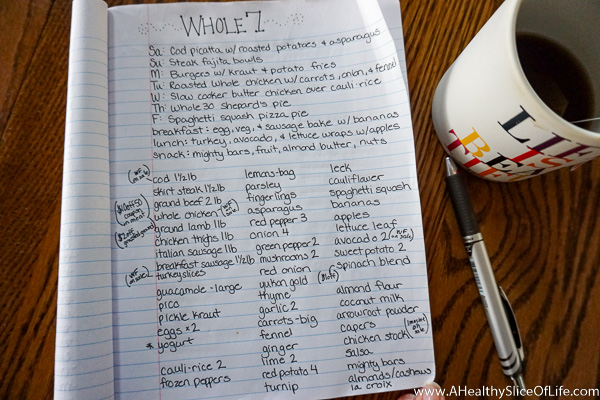 WHOLE 7
Sa: Cod picatta w/ roasted potatoes & asparagus
Su: Steak fajita bowls
M: Burgers w/ kraut & potato fries
Tu: Roasted whole chicken w/ carrots, onion, & fennel
W: Slow cooker butter chicken over cauli-rice
Th: Whole 30 sheperd's pie
F: Spaghetti squash pizza pie
breakfast: egg, veg, & sausage bake w/ bananas
lunch: turkey, avocado, & lettuce wraps w/ apples
snack: mighty bars, fruit, almond butter, nuts
(WF sale)
cod 1½lb
skirt steak 1½lb
grand beef 2 lb
whole chicken (WF sale)
ground lamb 1lb
chicken thighs 1lb
italian sausage 1lb
breakfast sausage 1½lb
turkey slices
guacamole - large
pico
pickle kraut
eggs x2
* yogurt
cauli-rice 2
frozen peppers
lemons-bag
parsley
fingerlings
asparagus
red pepper 3
onion 4
green pepper 2
mushrooms 2
red onion
yukon gold
thyme
garlic 2
carrots-big
fennel
ginger
lime 2
red potato 4
turnip
leek
cauliflower
spaghetti squash
bananas
apples
lettuce leaf
avocado 2
sweet potato 2
spinach blend
almond flour
coconut milk
arrowroot powder
capers
chicken stock
salsa
mighty bars
almonds/cashews
la croix
LIFE
IS
BEA
www.AHealthySliceOfLife.com